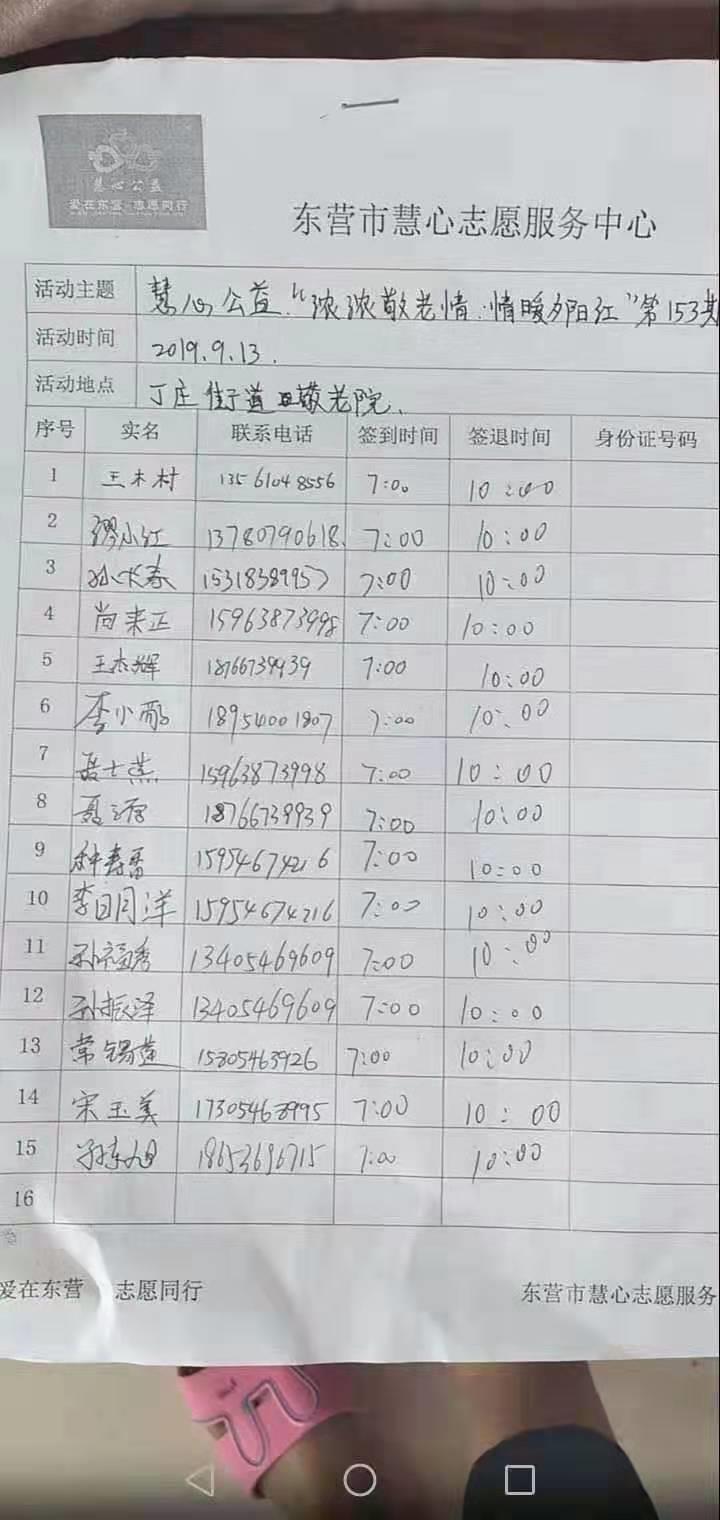 慧心公益
爱在东营 志愿同行
东营市慧心志愿服务中心
活动主题 慧心公益.“浓浓敬老情.情暖夕阳红”第153期
活动时间 2019.9.13.
活动地点 丁庄街道敬老院.
序号 实名 联系电话 签到时间 签退时间 身份证号码
1 王木村 13561048556 7:00 10:00
2 缪小红 13780790618. 7:00 10:00
3 孙长春 15318389957 7:00 10:00
4 尚来正 15963873998 7:00 10:00
5 王杰辉 18766739939 7:00 10:00
6 李小 18954001807 7:00 10:00
7 聂士燕 15963873998 7:00 10:00
8 18766739939 7:00 10:00
9 15954674216 7:00 10:00
10 李明洋 15954674216 7:00 10:00
11 孙福秀 13405469609 7:00 10:00
12 孙振泽 13405469609 7:00 10:00
13 常锡莲 15805463926 7:00 10:00
14 宋玉美 17305468995 7:00 10:00
15 18653696715 7:00 10:00
16
爱在东营 志愿同行 东营市慧心志愿服务